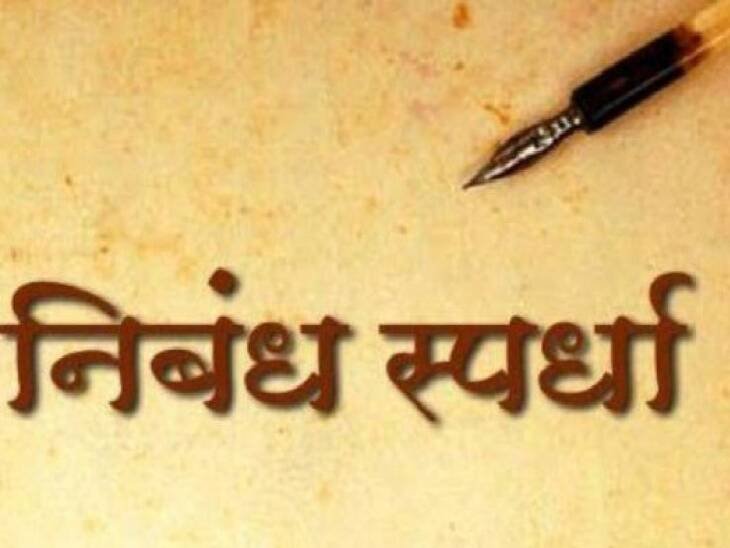 निबंध स्पर्धा